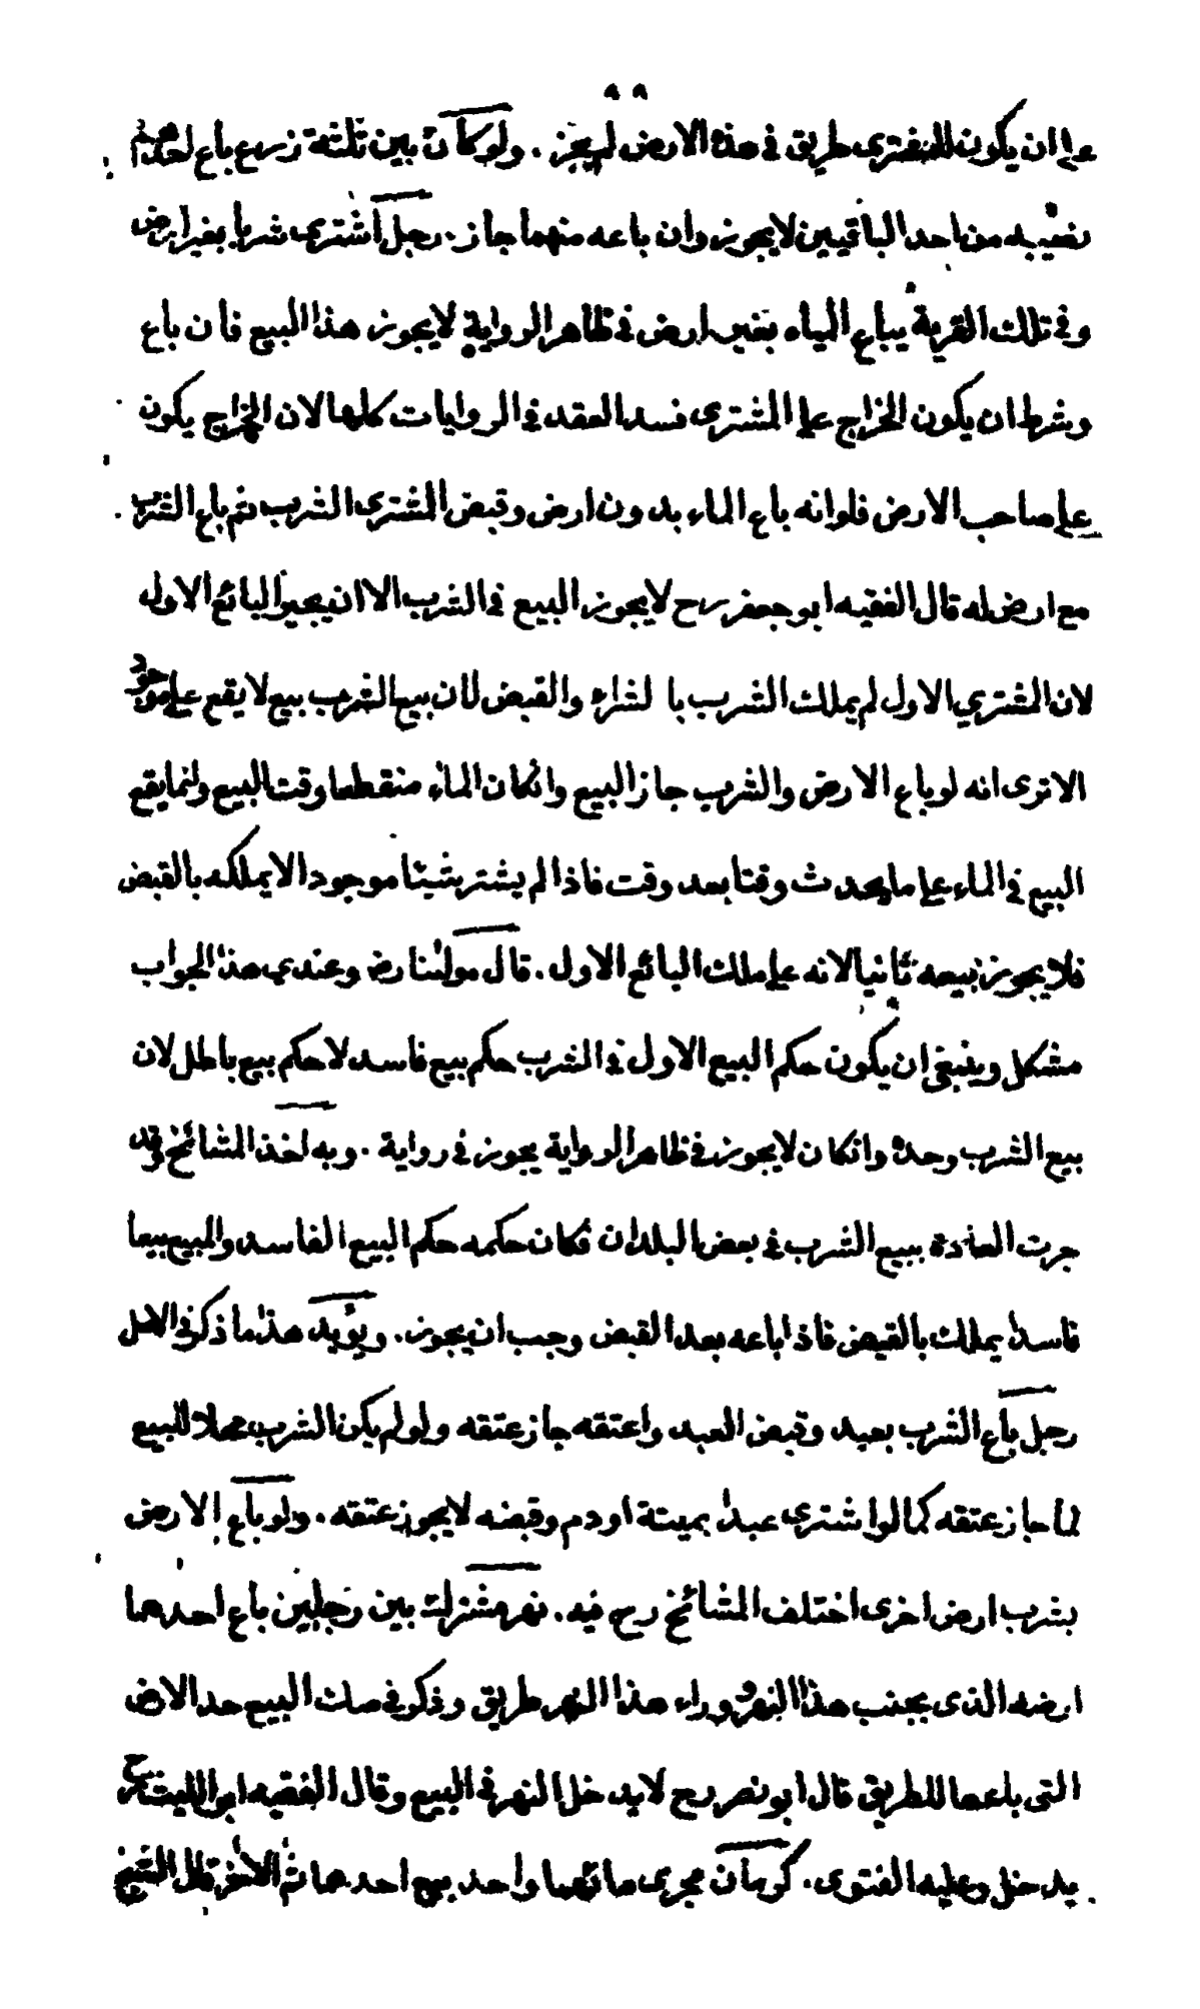 على ان يكون للمشترى طريق في هذه الارض لم يجز . ولو كان بين ثلثة زرع باع احدهم
نصيبه من احد الباقيين لا يجوز وان باعه منهما جاز . رجل اشترى شربا بغير ارض
وفي تلك القرية يباع المياه بغير ارض في ظاهر الرواية لا يجوز هذا البيع فان باع
وشرط ان يكون الخراج على المشترى فسد العقد في الروايات كلها لان الخراج يكون
على صاحب الارض فلو انه باع الماء بدون ارض وقبض المشترى الشرب ثم باع الشرب
مع ارض له قال الفقيه ابو جعفر رح لا يجوز البيع في الشرب الا ان يجيز البائع الاول
لان المشتري الاول لم يملك الشرب بالشراء والقبض لان بيع الشرب بيع لا يقع على موجود
الا ترى انه لو باع الارض والشرب جاز البيع وانكان الماء منقطعا وقت البيع وانما يقع
البيع في الماء على ما يحدث وقتا بعد وقت فاذا لم يشتر شيئا موجودا لا يملكه بالقبض
فلا يجوز بيعه ثانيا لانه على ملك البائع الاول . قال مولٰنا رض وعندي هذا الجواب
مشكل وينبغي ان يكون حكم البيع الاول في الشرب حكم بيع فاسد لا حكم بيع باطل لان
بيع الشرب وحده وانكان لا يجوز في ظاهر الرواية يجوز في رواية . وبه اخذ المشائخ وقد
جرت العادة ببيع الشرب في بعض البلدان فكان حكمه حكم البيع الفاسد والمبيع بيعا
فاسدا يملك بالقبض فاذا باعه بعد القبض وجب ان يجوز . ويؤيد هذا ما ذكر في الاصل
رجل باع الشرب بعبد وقبض العبد واعتقه جاز عتقه ولو لم يكن الشرب محلا للبيع
لما جاز عتقه كما لو اشترى عبدا بميتة او دم وقبضه لا يجوز عتقه . ولو باع الارض
بشرب ارض اخرى اختلف المشائخ رح فيه . نهر مشترك بين رجلين باع احدهما
ارضه الذى بجنب هذا النهر ووراء هذا النهر طريق وذكر في صك البيع حد الارض
التى باعها للطريق قال ابو نصر رح لا يدخل النهر في البيع وقال الفقيه ابو الليث رح
يدخل وعليه الفتوى . كرمان مجرى مائهما واحد بيع احدهما ثم الآخر قال الشيخ